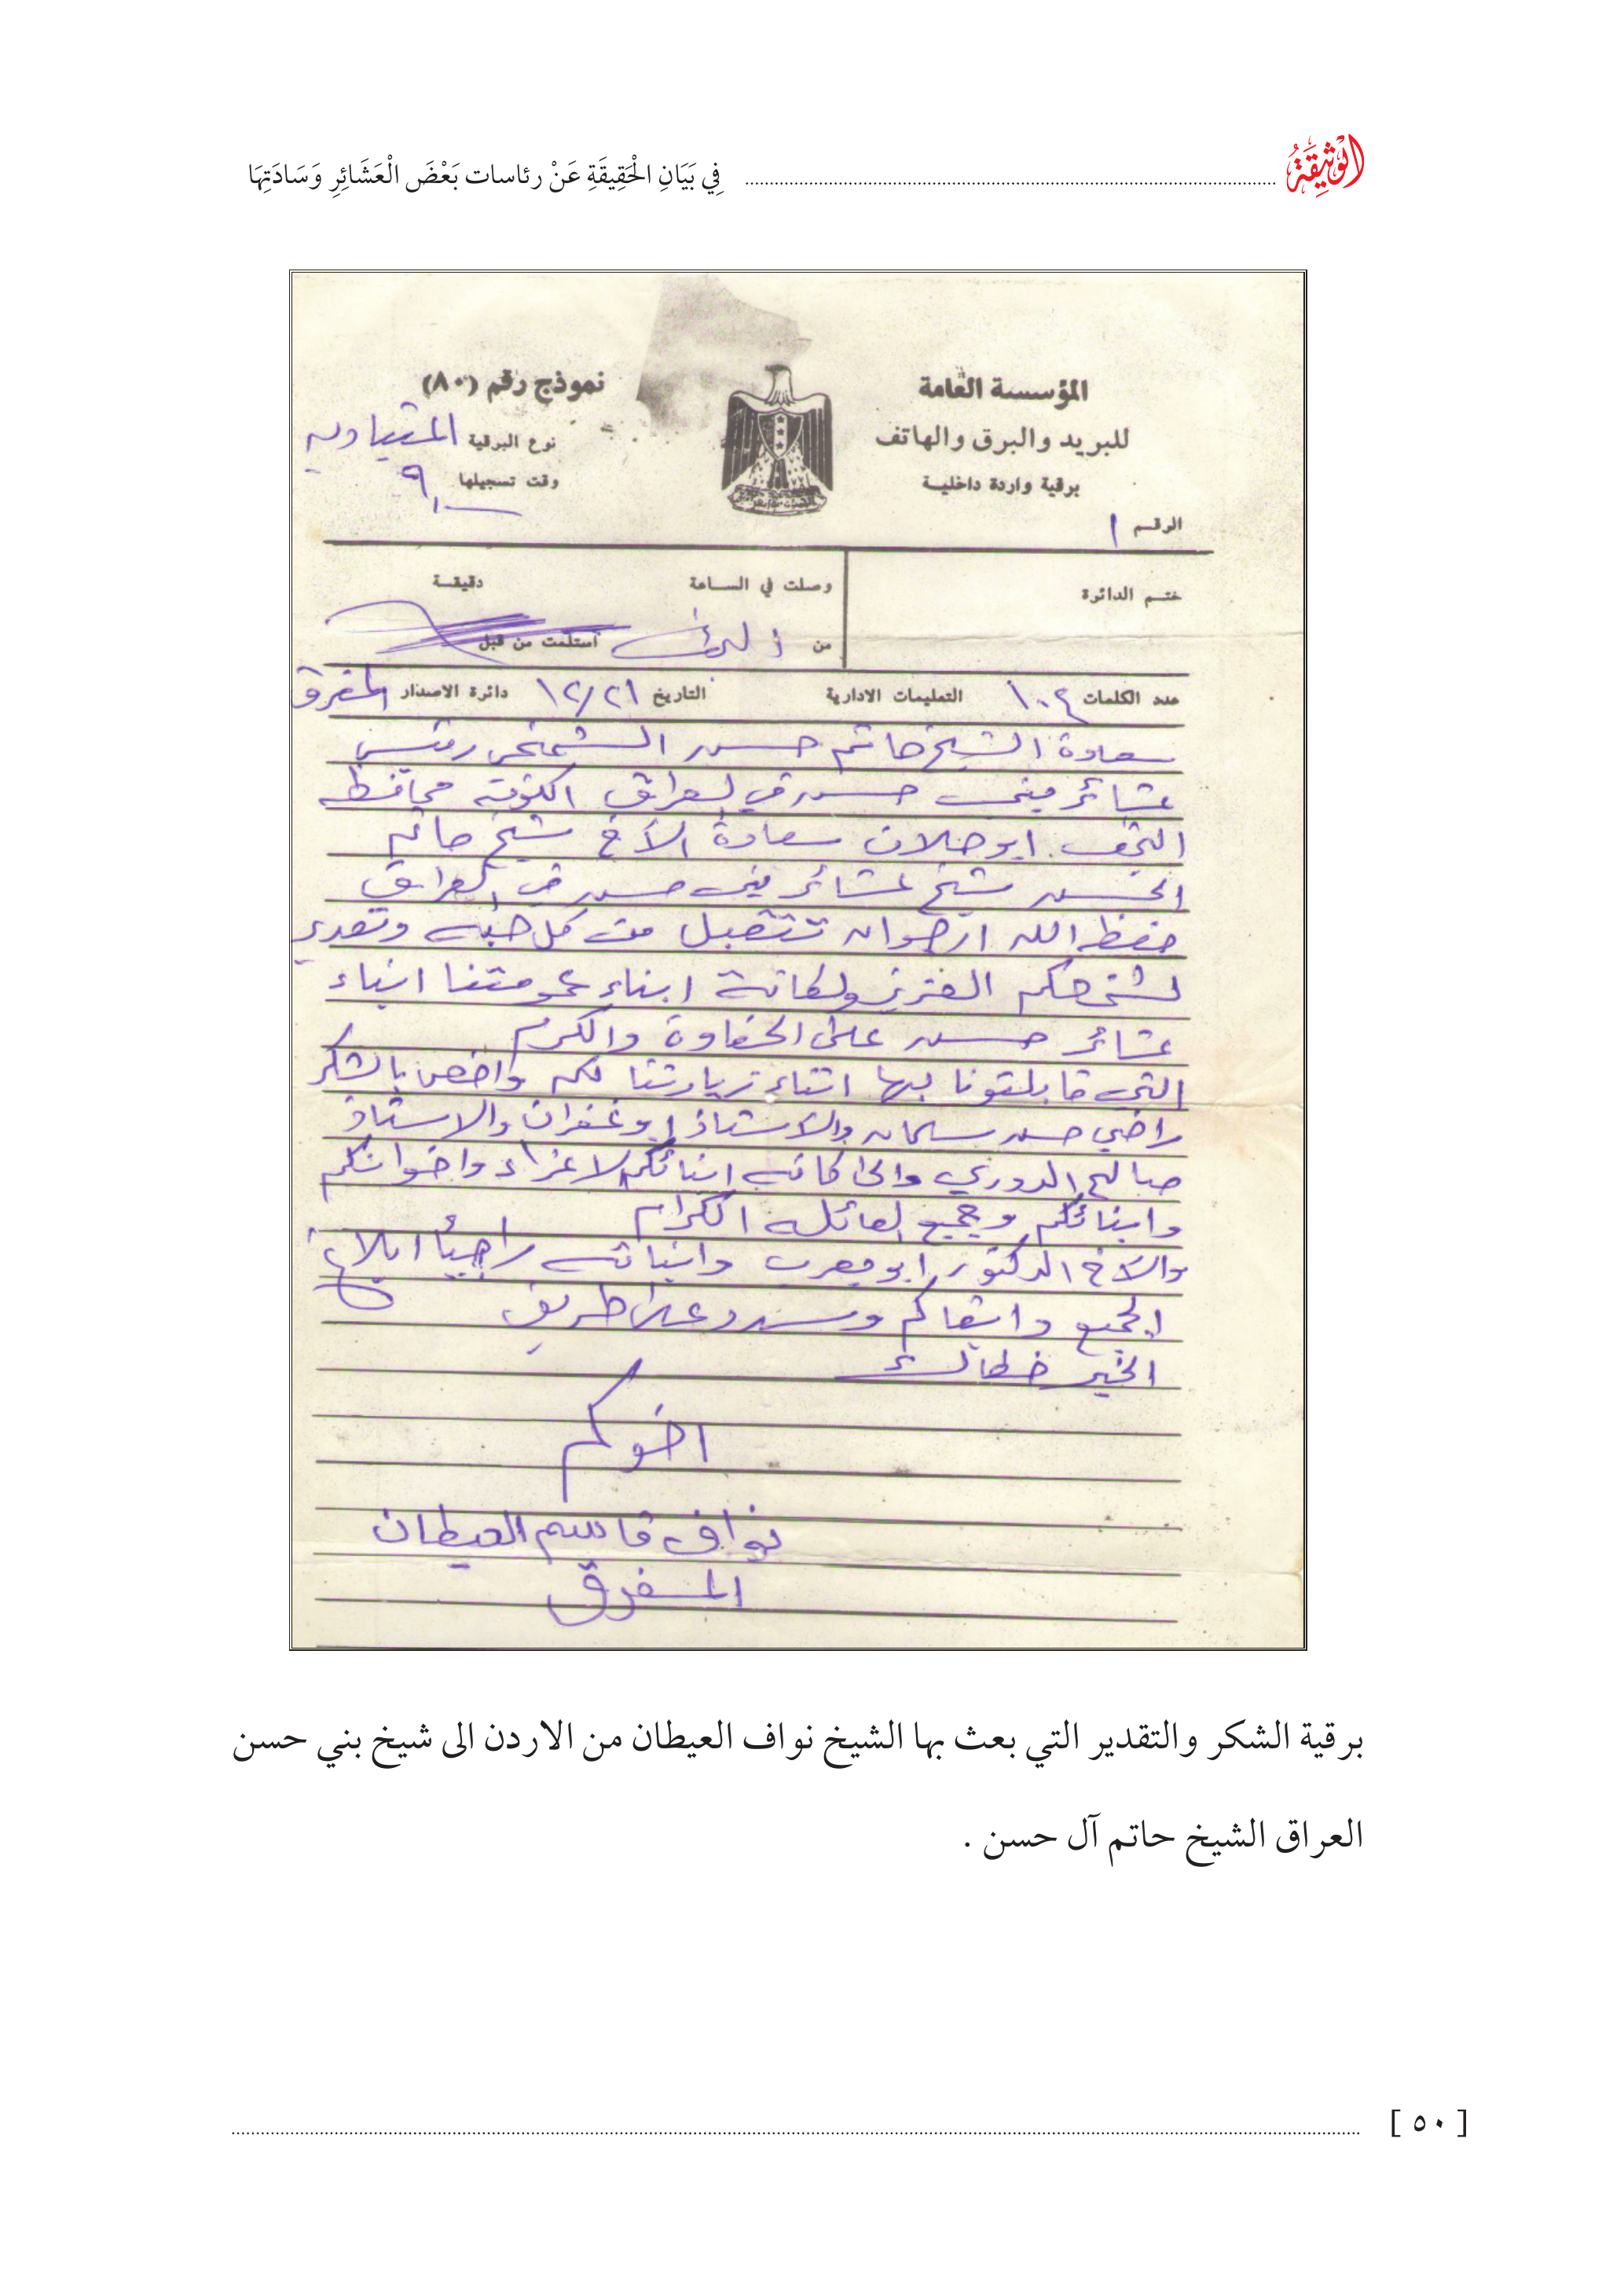 الوَثِيقَةُ
فِي بَيَانِ الْحَقِيقَةِ عَنْ رئاسات بَعْضَ الْعَشَائِرِ وَسَادَتِهَا
المؤسسة العامة
للبريد والبرق والهاتف
برقية واردة داخلية
الرقم ١
نموذج رقم (٨٠)
نوع البرقية
وقت تسجيلها ٩
ختم الدائرة
وصلت في الساعة دقيقة
من استلمت من قبل
عدد الكلمات ١٠٤ التعليمات الادارية التاريخ ١٢/٢١ دائرة الاصدار المفرق
سعادة الشيخ حاتم حسن رئيس
عشائر بني حسن في العراق الكوفة محافظة
النجف ابو سعادة الاخ شيخ حاتم
الحسن شيخ عشائر بني حسن في العراق
حفظه الله ارجو ان تتقبل كل وتقدير
لشخصكم العزيز ولكافة ابناء عمومتنا ابناء
عشائر حسن على الحفاوة والكرم
التي قابلتونا بها اثناء زيارتنا لكم واخص بالشكر
راضي حسن سلمان والاستاذ ابو غفران والاستاذ
صالح الدوري والى كافة ابنائكم الاعزاء واخوانكم
وابنائكم وجميع العائلة الكرام
والاخ الدكتور ابو وابنائه راجياً ابلاغ
الجميع وابقاكم وسدد على طريق
الخير خطاك
اخوكم
نواف قاسم العيطان
المفرق
برقية الشكر والتقدير التي بعث بها الشيخ نواف العيطان من الاردن الى شيخ بني حسن
العراق الشيخ حاتم آل حسن .
[ ٥٠ ]